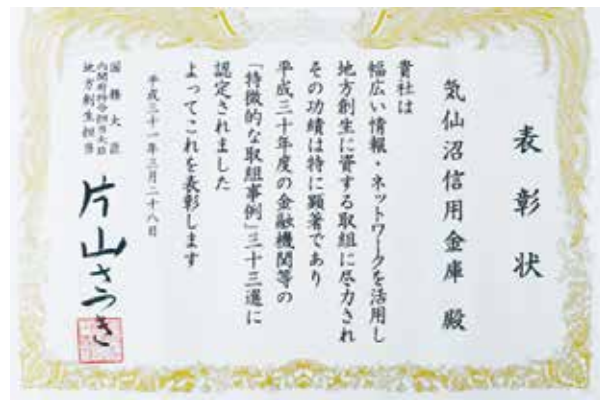 表彰状
気仙沼信用金庫 殿
貴社は
幅広い情報・ネットワークを活用し
地方創生に資する取組に尽力され
その功績は特に顕著であり
平成三十年度の金融機関等の
「特徴的な取組事例」三十三選に
認定されました
よってこれを表彰します
平成三十一年三月二十八日
国務大臣
内閣府特命担当大臣
地方創生担当
片山さつき